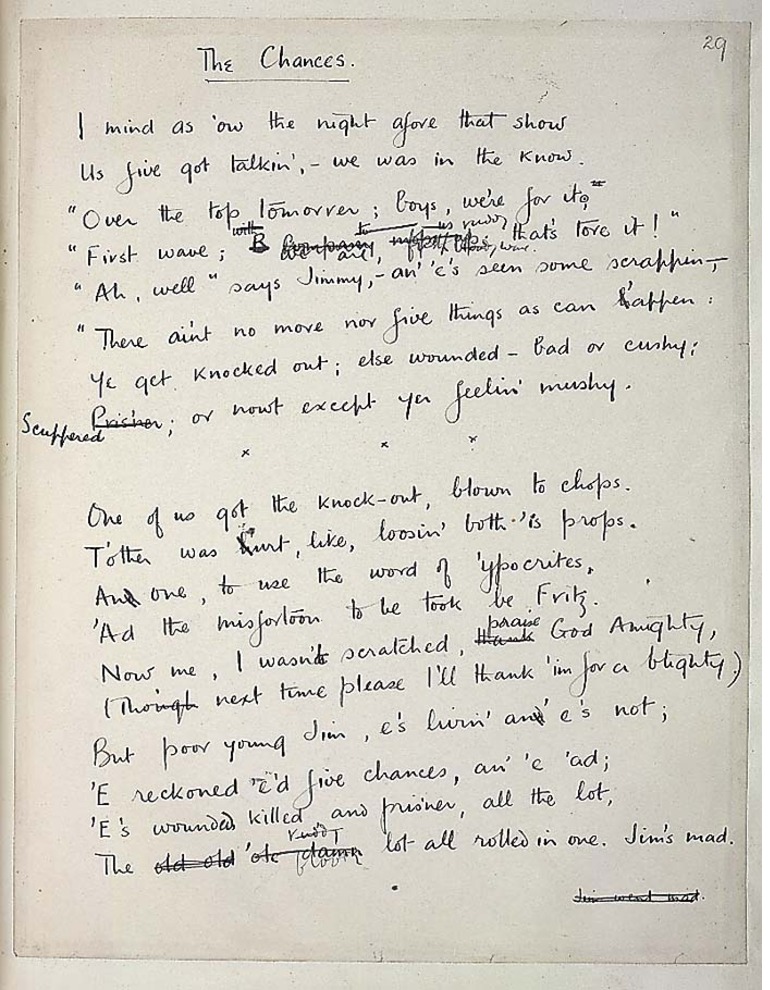 29
The Chances.
I mind as 'ow the night afore that show
Us five got talkin', – we was in the know.
"Over the top tomorrer; boys, we're for it.
with to us ruddy
"First wave; B Company, we are, that's tore it!"
"Ah, well" says Jimmy, – an' 'e's seen some scrappin –,
"There ain't no more nor five things as can 'appen:
Ye get knocked out; else wounded – bad or cushy;
Scuppered Pris'ner; or nowt except yer feelin' mushy.
x x x
One of us got the knock-out, blown to chops.
T'other was hurt, like, loosin' both 'is props.
And one, to use the word of 'ypocrites,
'Ad the misfortoon to be took be Fritz.
praise
Now me, I wasn't scratched, thank God Amighty,
(Though next time please I'll thank 'im for a blighty.)
But poor young Jim, e's livin' an' e's not;
'E reckoned 'e'd five chances, an' 'e 'ad;
'E's wounded killed and pris'ner, all the lot,
ruddy
The old old 'ole damn lot all rolled in one. Jim's mad.
bloody
Jim went mad.